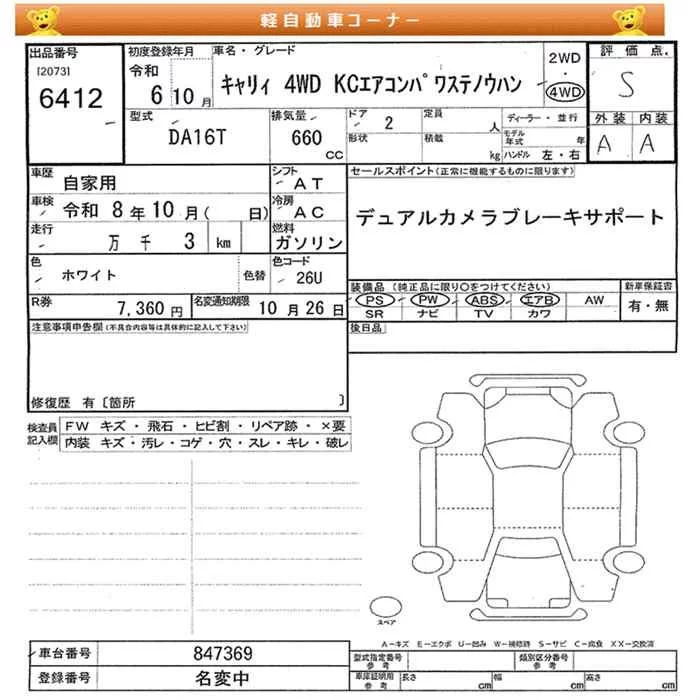 軽自動車コーナー
出品番号
[2073]
6412
初度登録年月
令和
6 10 月
車名・グレード
キャリィ 4WD KCエアコンパ ワステノウハン
2WD
・
4WD
評価点.
S
外装 内装
A A
型式
DA16T
排気量
660
CC
ドア 2
形状
定員
人
積載
kg
ディーラー・並行
モデル年式 年
ハンドル 左・右
車歴 自家用
シフト AT
車検 令和 8年10月( 日)
冷房 AC
走行
万 千 3 km
燃料
ガソリン
色
ホワイト
色替
色コード
26U
R券 7,360円
名変通知期限 10月26日
セールスポイント(正常に機能するものに限ります)
デュアルカメラブレーキサポート
装備品 (純正品に限り○をつけてください)
新車保証書
PS PW ABS エアB AW
SR ナビ TV カワ
有・無
後日品
注意事項申告欄(不具合内容等は具体的に記入して下さい)
修復歴 有〔箇所 〕
検査員
記入欄
FW キズ・飛石・ヒビ割・リペア跡・×要
内装 キズ・汚レ・コゲ・穴・スレ・キレ・破レ
スペア
A-キズ E-エクボ U-凹み W-補修跡 S-サビ C-腐食 XX-交換済
車台番号 847369
登録番号 名変中
型式指定番号
参考
類別区分番号
参考
車庫証明用
参考
長さ cm 幅 cm 高さ cm